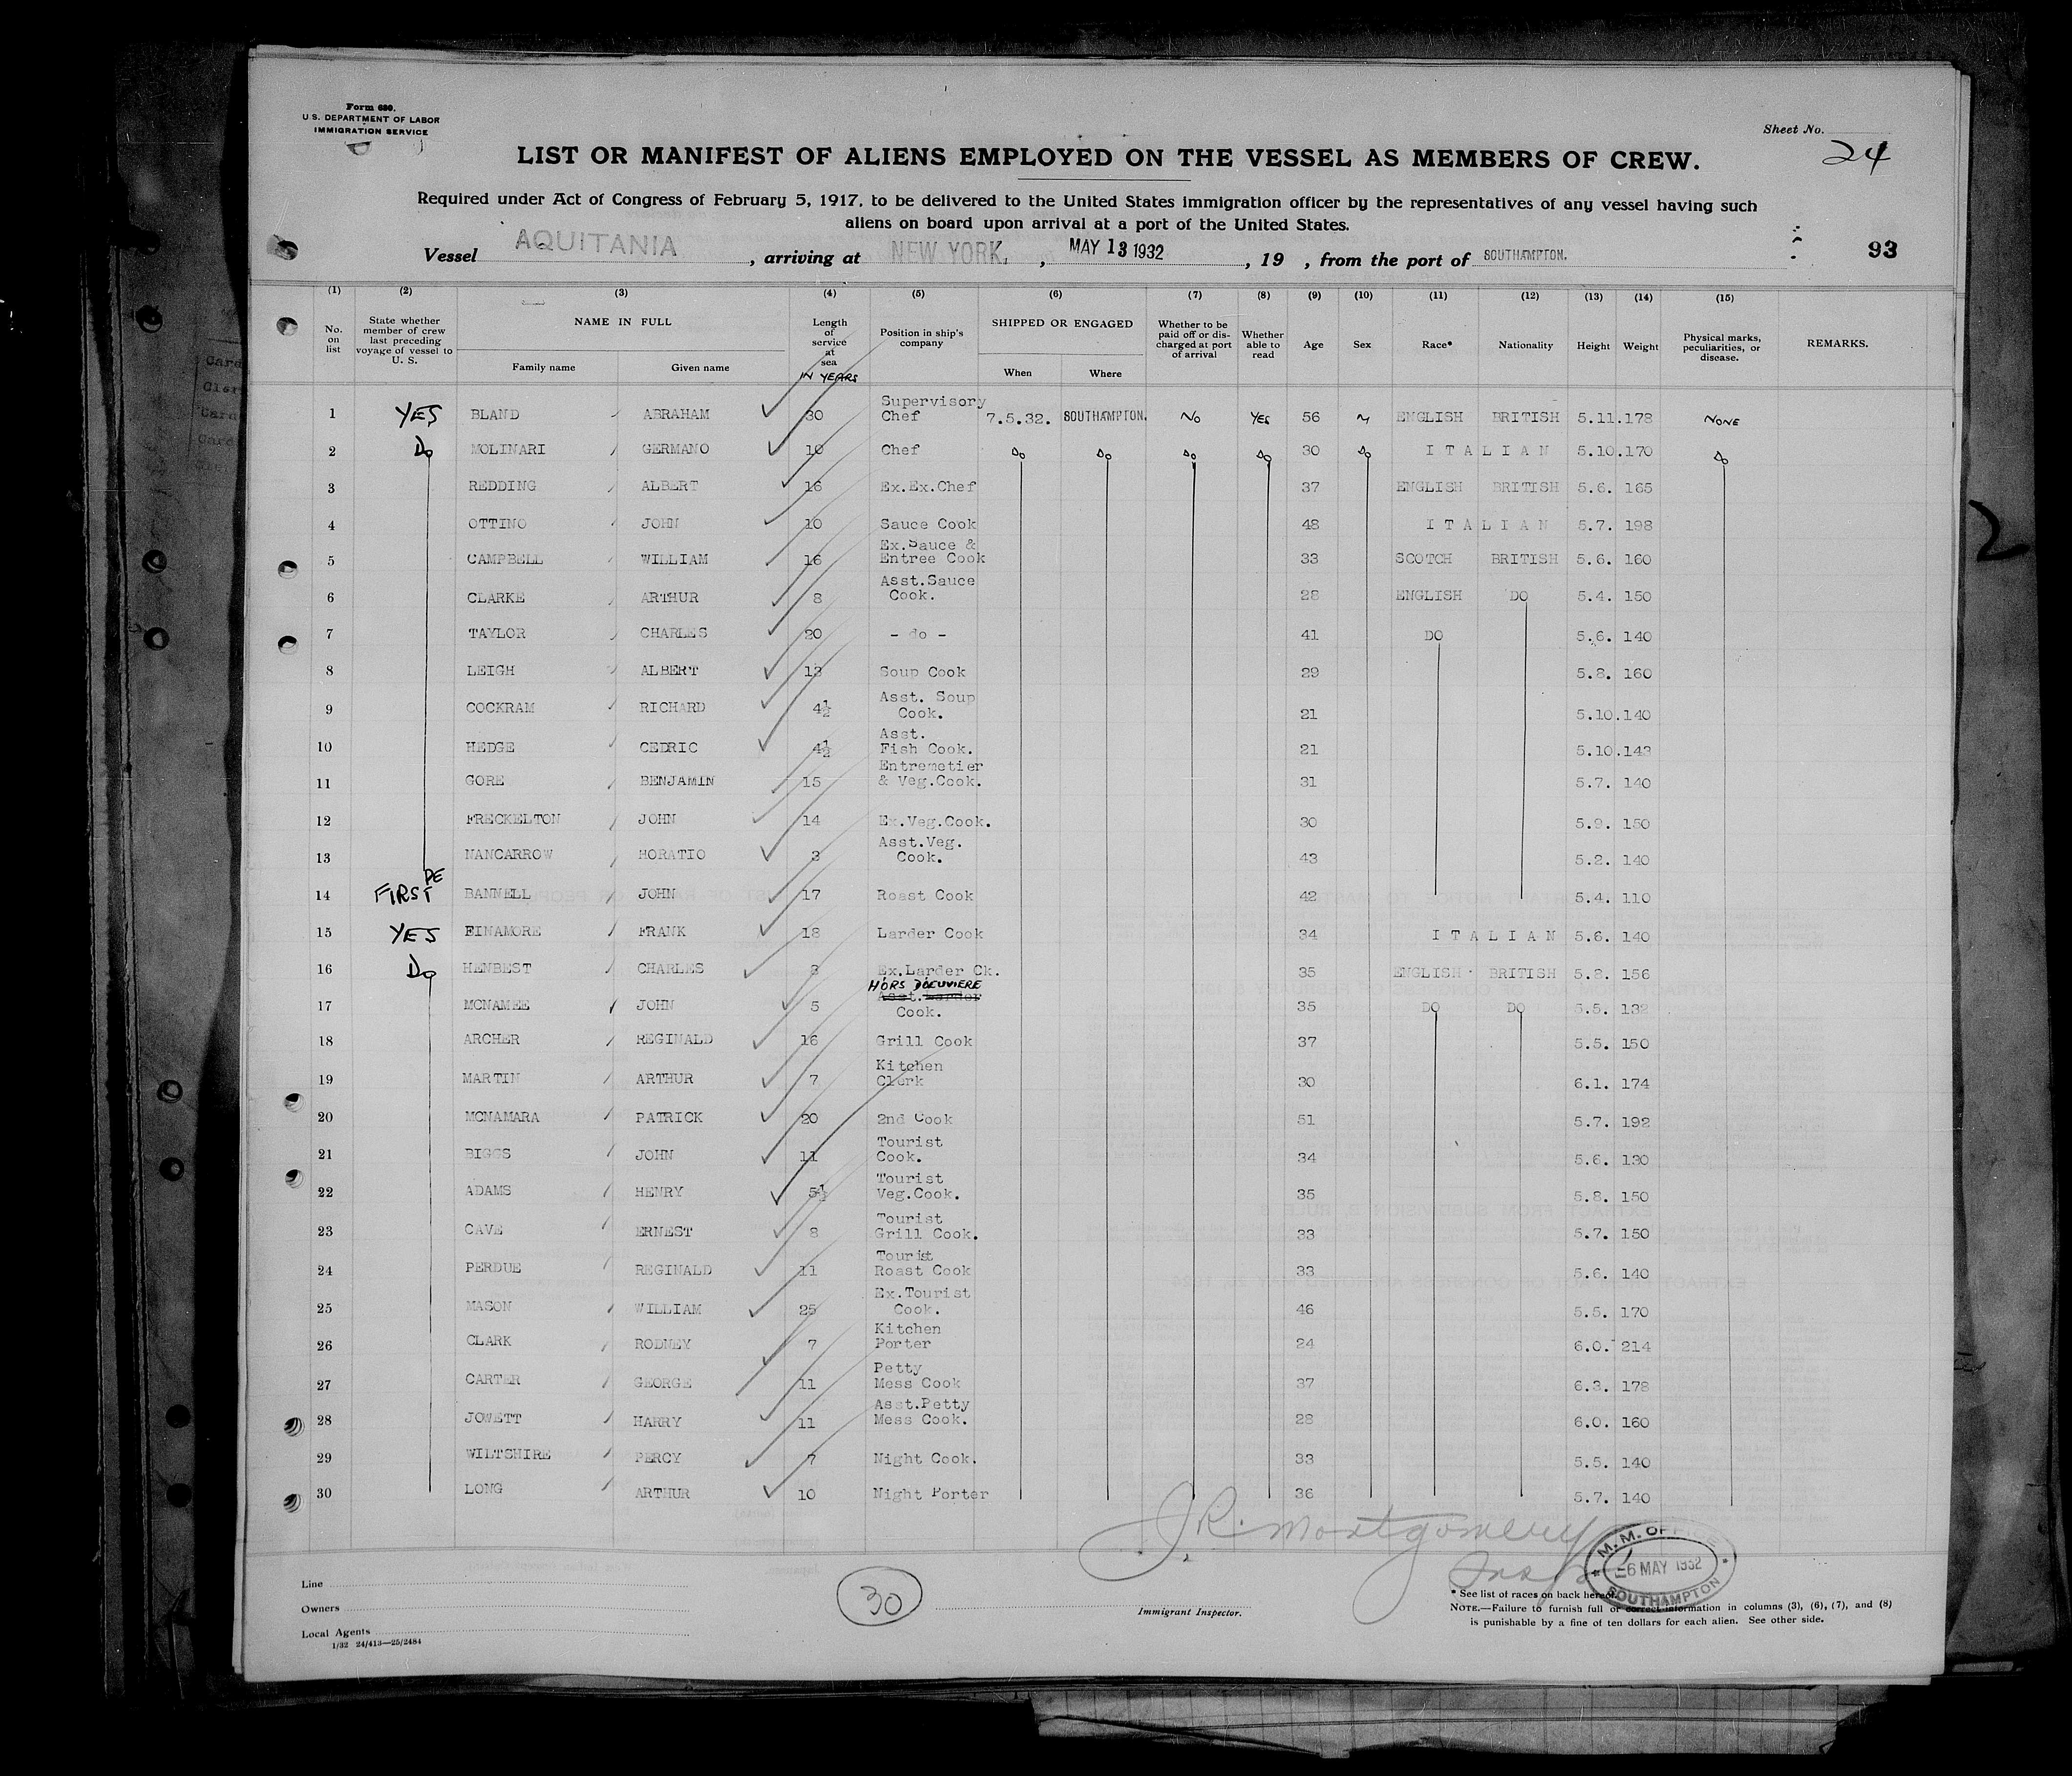 Form 680.
U. S. DEPARTMENT OF LABOR
IMMIGRATION SERVICE
Sheet No.
24
LIST OR MANIFEST OF ALIENS EMPLOYED ON THE VESSEL AS MEMBERS OF CREW.
Required under Act of Congress of February 5, 1917, to be delivered to the United States immigration officer by the representatives of any vessel having such
aliens on board upon arrival at a port of the United States.
Vessel AQUITANIA, arriving at NEW YORK, MAY 13 1932, 19 , from the port of SOUTHAMPTON.
93
(1) (2) (3) (4) (5) (6) (7) (8) (9) (10) (11) (12) (13) (14) (15)
No. on list State whether member of crew last preceding voyage of vessel to U. S. NAME IN FULL Family name Given name Length of service at sea IN YEARS Position in ship's company SHIPPED OR ENGAGED When Where Whether to be paid off or discharged at port of arrival Whether able to read Age Sex Race* Nationality Height Weight Physical marks, peculiarities, or disease. REMARKS.
1 YES BLAND ABRAHAM 30 Supervisory Chef 7.5.32. SOUTHAMPTON. No YES 56 M ENGLISH BRITISH 5.11. 178 NONE
2 Do MOLINARI GERMANO 10 Chef Do Do Do Do 30 Do ITALIAN 5.10. 170 Do
3 REDDING ALBERT 16 Ex.Ex.Chef 37 ENGLISH BRITISH 5.6. 165
4 OTTINO JOHN 10 Sauce Cook 48 ITALIAN 5.7. 198
5 CAMPBELL WILLIAM 16 Ex.Sauce & Entree Cook 33 SCOTCH BRITISH 5.6. 160
6 CLARKE ARTHUR 8 Asst.Sauce Cook. 28 ENGLISH DO 5.4. 150
7 TAYLOR CHARLES 20 - do - 41 DO 5.6. 140
8 LEIGH ALBERT 13 Soup Cook 29 5.8. 160
9 COCKRAM RICHARD 4½ Asst. Soup Cook. 21 5.10. 140
10 HEDGE CEDRIC 4½ Asst. Fish Cook. 21 5.10. 143
11 GORE BENJAMIN 15 Entremetier & Veg.Cook. 31 5.7. 140
12 FRECKELTON JOHN 14 Ex.Veg.Cook. 30 5.9. 150
13 NANCARROW HORATIO 3 Asst.Veg. Cook. 43 5.2. 140
14 FIRST BANNELL JOHN 17 Roast Cook 42 5.4. 110
15 YES FINAMORE FRANK 18 Larder Cook 34 ITALIAN 5.6. 140
16 Do HENBEST CHARLES 8 Ex.Larder Ck. 35 ENGLISH BRITISH 5.8. 156
17 MCNAMEE JOHN 5 HORS DOEUVIERE Asst. Larder Cook. 35 DO DO 5.5. 132
18 ARCHER REGINALD 16 Grill Cook 37 5.5. 150
19 MARTIN ARTHUR 7 Kitchen Clerk 30 6.1. 174
20 MCNAMARA PATRICK 20 2nd Cook 51 5.7. 192
21 BIGGS JOHN 11 Tourist Cook. 34 5.6. 130
22 ADAMS HENRY 5½ Tourist Veg.Cook. 35 5.8. 150
23 CAVE ERNEST 8 Tourist Grill Cook. 33 5.7. 150
24 PERDUE REGINALD 11 Tourist Roast Cook 33 5.6. 140
25 MASON WILLIAM 25 Ex.Tourist Cook. 46 5.5. 170
26 CLARK RODNEY 7 Kitchen Porter 24 6.0. 214
27 CARTER GEORGE 11 Petty Mess Cook 37 6.3. 178
28 JOWETT HARRY 11 Asst.Petty Mess Cook. 28 6.0. 160
29 WILTSHIRE PERCY 7 Night Cook. 33 5.5. 140
30 LONG ARTHUR 10 Night Porter 36 5.7. 140
J.R. Montgomery
Insp
M. M. OFFICE
6 MAY 1932
SOUTHAMPTON
Line
Owners
Local Agents
1/32 24/413—25/2484
30
Immigrant Inspector.
* See list of races on back hereof.
NOTE.—Failure to furnish full or correct information in columns (3), (6), (7), and (8)
is punishable by a fine of ten dollars for each alien. See other side.
2